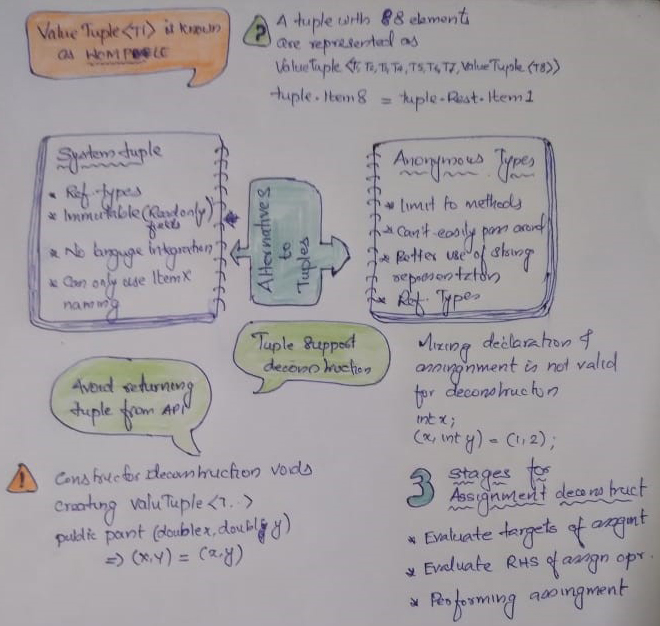 ValueTuple<T1> is known
as WOMPOLE
? A tuple with 88 elements
are represented as
ValueTuple <T1, T2, T3, T4, T5, T6, T7, ValueTuple <T8>>
tuple.Item8 = tuple.Rest.Item1
System tuple
* Ref. types
* Immutable (Readonly
fields
* No languge integration
* Can only use ItemX
naming
Alternatives
to
Tuples
Anonymous Types
* limit to methods
* Can't easily pass around
* Better use of string
representation
* Ref. Types
Tuple Support
deconstruction
Avoid returning
tuple from API
Mixing declaration &
assingnment is not valid
for deconstructon
int x;
(x, int y) = (1, 2);
! Constructor deconstruction voids
creating ValuTuple<T..>
public point (double x, double y)
=> (X, Y) = (x, y)
3 stages for
Assignment deconstruct
* Evaluate targets of
* Evaluate RHS of assgn opr.
* Performing assingment